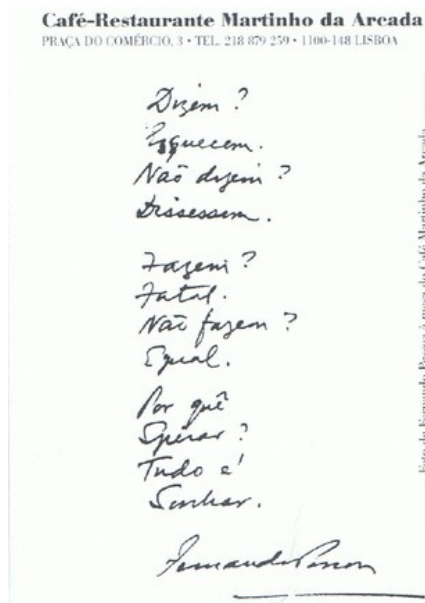 Café-Restaurante Martinho da Arcada
PRAÇA DO COMÉRCIO, 3 • TEL. 218 879 259 • 1100-148 LISBOA
Dizem ?
Esquecem.
Não dizem ?
Dissessem.
Fazem ?
Fatal.
Não fazem ?
Egual.
Por quê
Sperar ?
Tudo é
Sonhar.
Fernando Pessoa
Café Martinho da Arcada